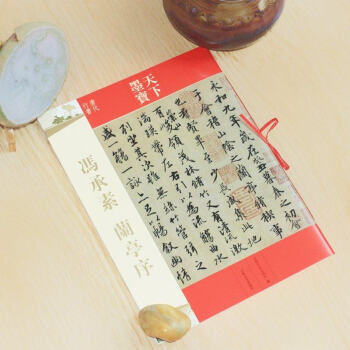 天下
墨寶
唐代
行書
馮承素 蘭亭序
永和九年歲在癸丑暮春之初會
于會稽山陰之蘭亭脩稧事
也群賢畢至少長咸集此地
有崇山峻領茂林脩竹又有清流激
湍暎帶左右引以為流觴曲水
列坐其次雖無絲竹管弦之
盛一觴一詠亦足以暢敘幽情